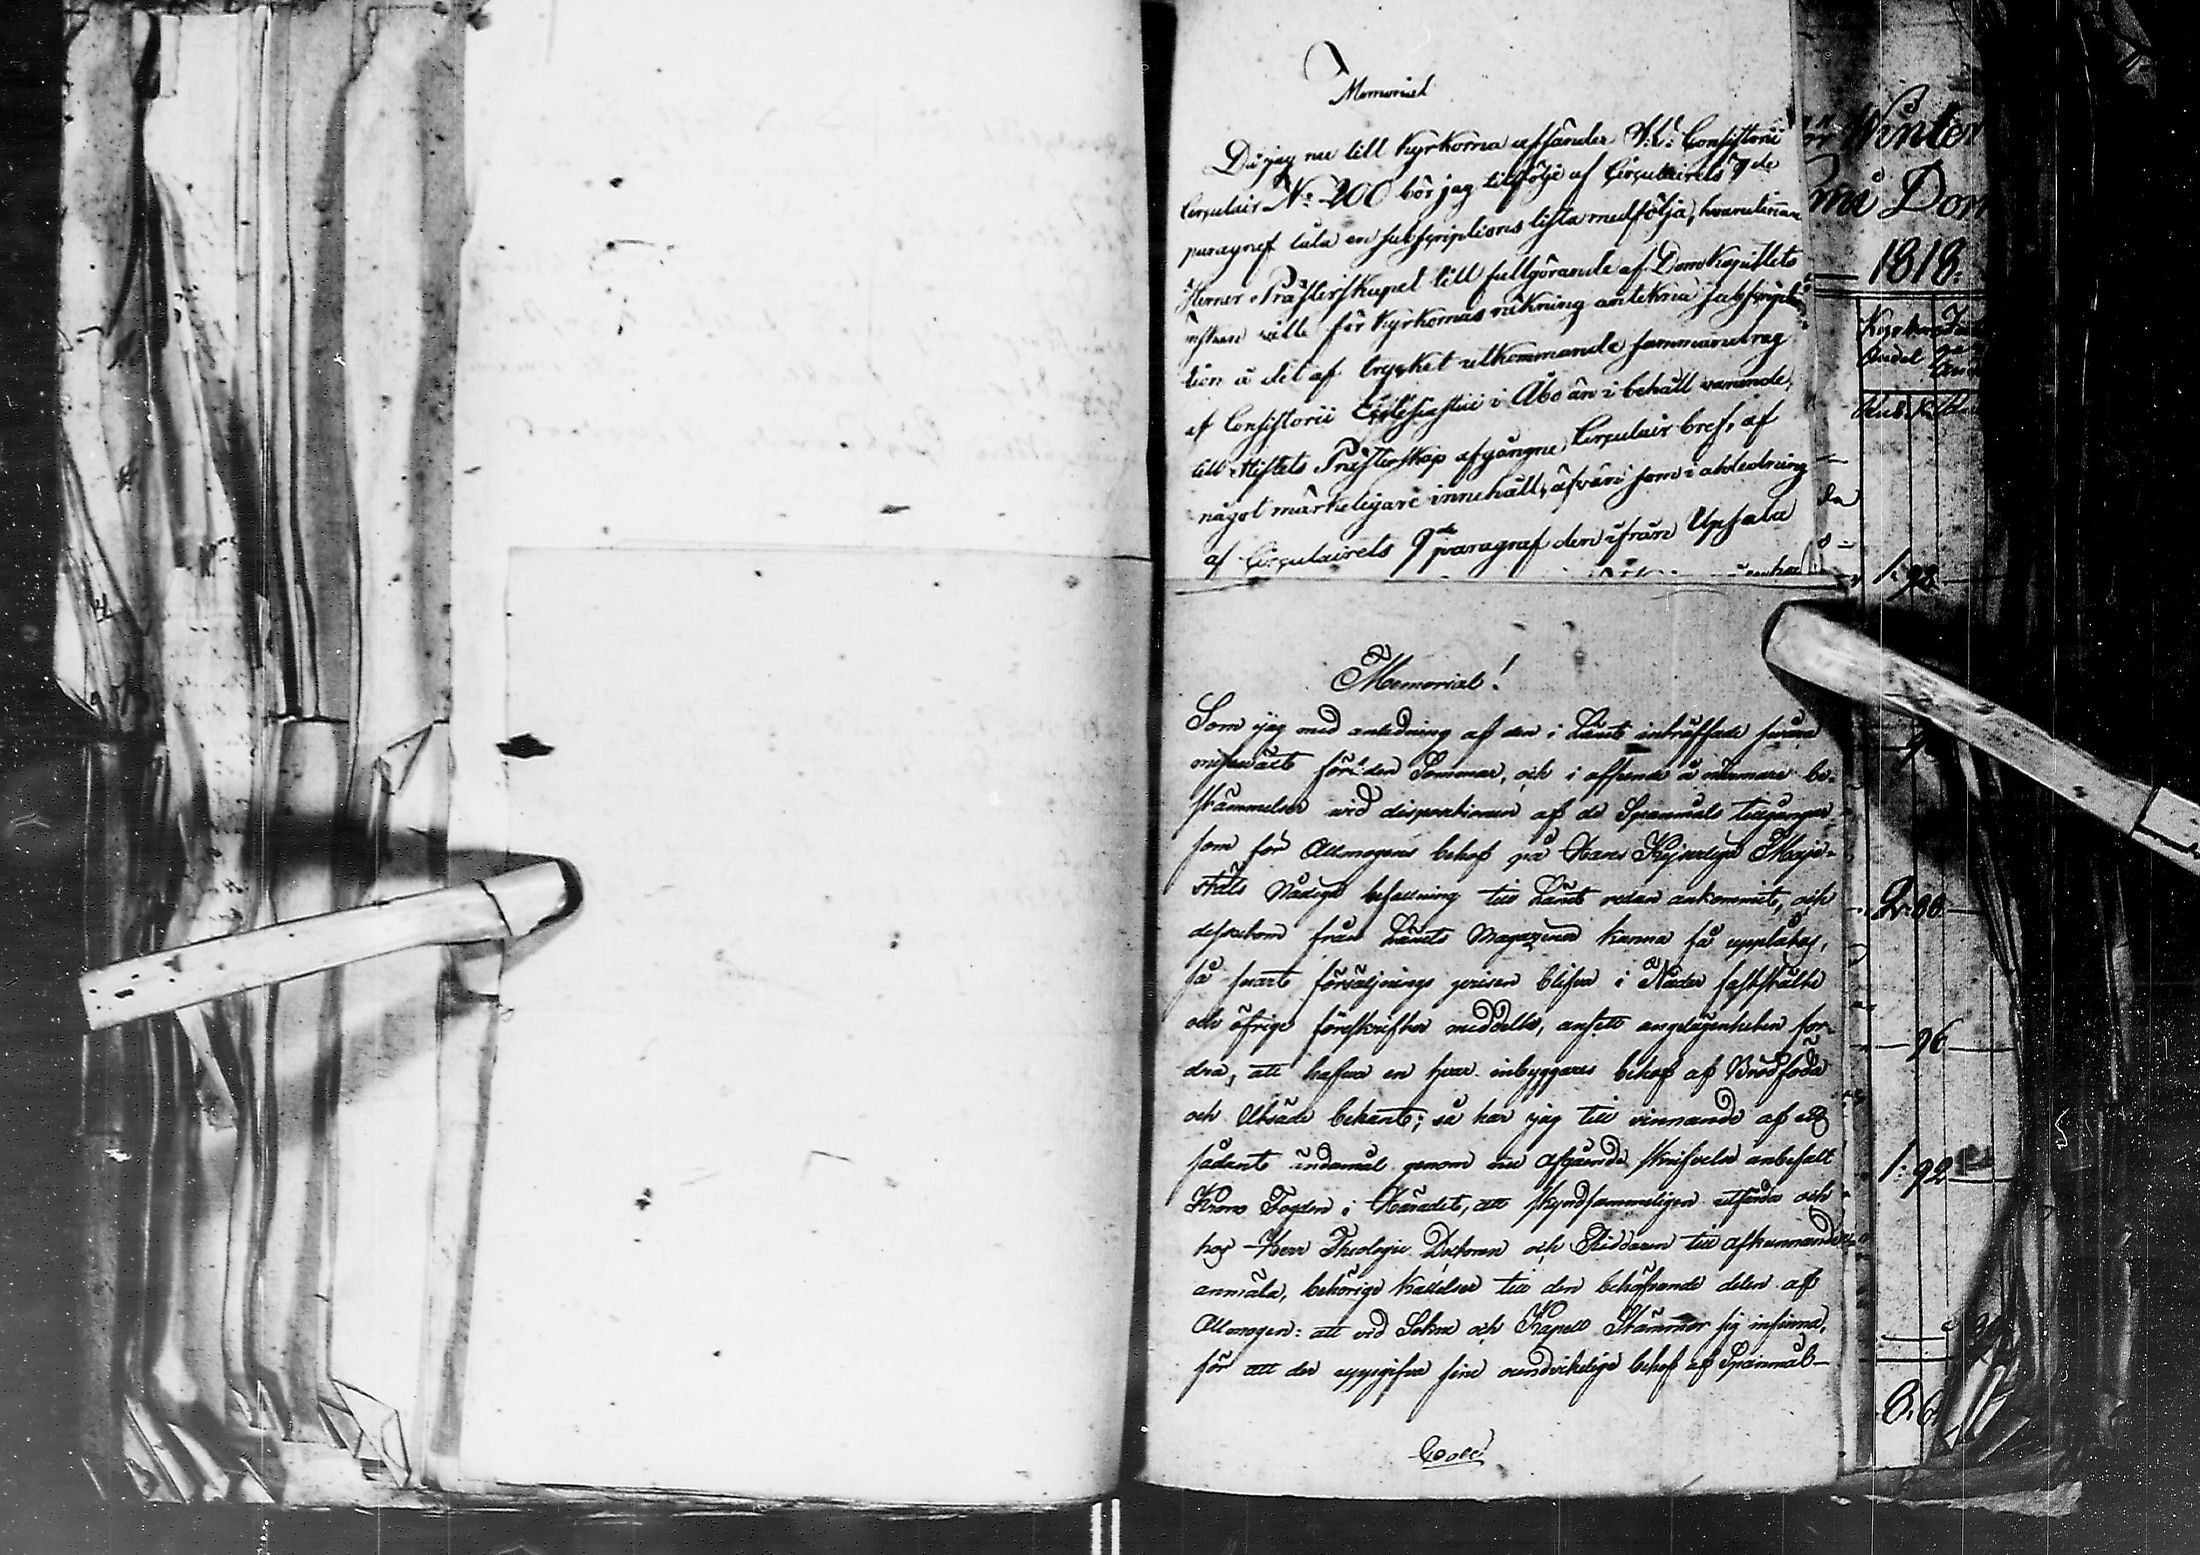 Memorial
Då jag nu till Kyrkorna afsänder V: C: Consistorii
Circulair N:o 200 bör jag tillfölje af Circulairets 7de
paragraf låta en subscriptions lista medfölja, hvarå
Herrar Prästerskapet till fullgörande af DomKapitlets
önskan ville för Kyrkornas räkning anteckna subscrip
tion å det af trycket utkommande sammandrag
af Consistorii Ecclesiastici i Åbo än i behåll varande,
till Stiftets Prästerskap afgångne Circulair bref, af
något märkeligare innehåll, äfven som i anledning
af Circulairets 9de paragraf den ifrån Upsala
Memorial!
Som jag med anledning af den i Länet inträffade svåra
missväxt förliden Sommar, och i afseende å närmare be-
stämmelser vid dispositionen af de Spanmåls tillgångar
som för Allmogens behof på Hans Kejserliga Maje-
stäts Nådiga befallning till Länet redan ankommit, och
dessutom från Länets Magaziner kunna få upplåtas,
så snart försäljnings prisen blifva i Nåder faststälte
och öfrige föreskrifter meddelte, ansett angelägenheten for-
dra, att hafva en hvar inbyggares behof af Brödföda
och Utsäde bekant; så har jag till vinnande af ett
sådant ändamål genom nu afgående skrifvelse anbefalt
Krono Fogden i Häradet, att skyndsammeligen utfärda och
hos Herr Theologie Doctoren och Riddaren till afkunnande
anmäla, behörige kallelser till den behöfvande delen af
Allmogen: att vid Sokne och Kapell Stämmor sig infinna,
för att der uppgifva sine oundvikelige behof af Spanmål
Winter
Dom
1818.
1: 92
2: 88
96
1: 92